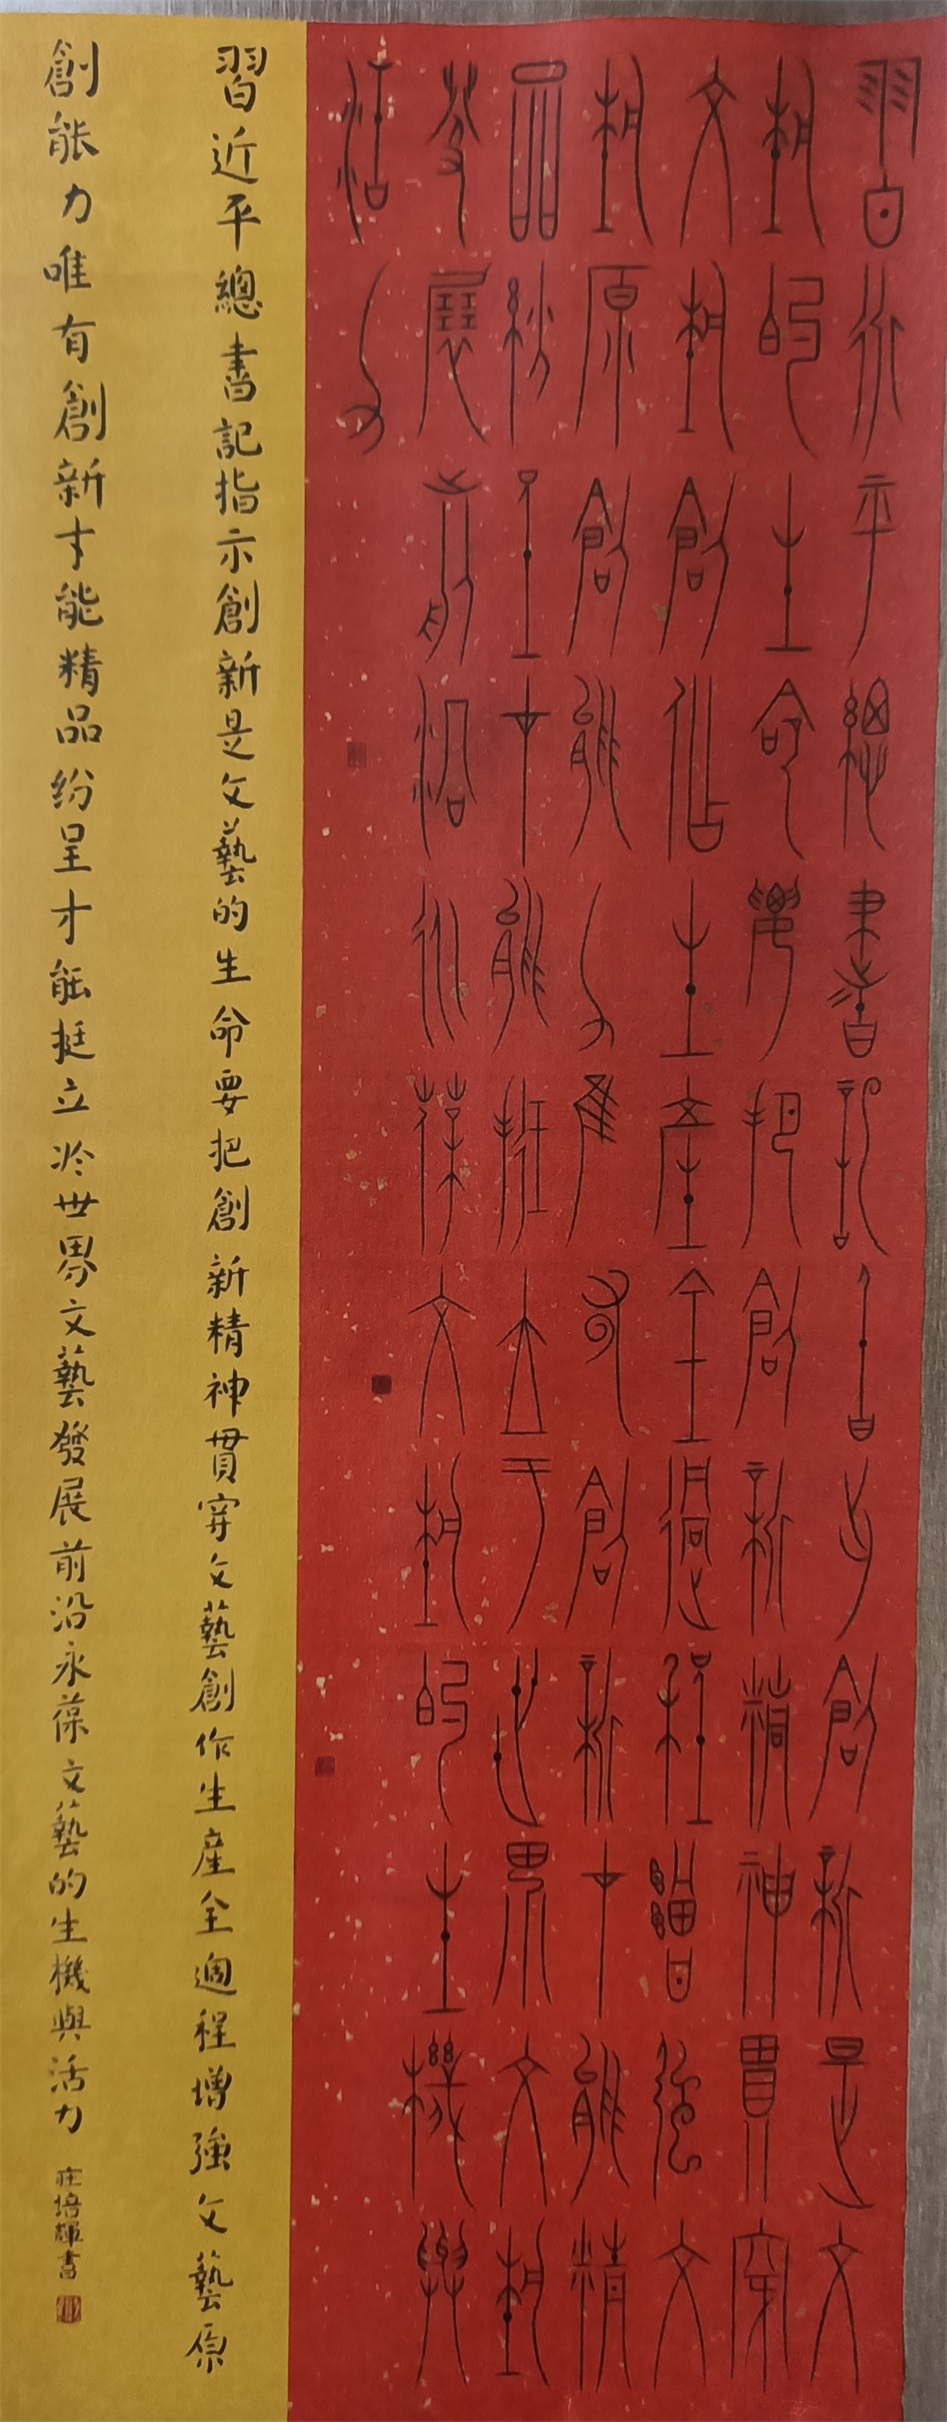 習近平總書記指示創新是文
藝的生命要把創新精神貫穿
文藝創作生産全過程增強文
藝原創能力唯有創新才能精
品紛呈才能挺立于世界文藝
發展前沿永葆文藝的生機與
活力
習近平總書記指示創新是文藝的生命要把創新精神貫穿文藝創作生産全過程增強文藝原
創能力唯有創新才能精品紛呈才能挺立於世界文藝發展前沿永葆文藝的生機與活力 庄培輝書